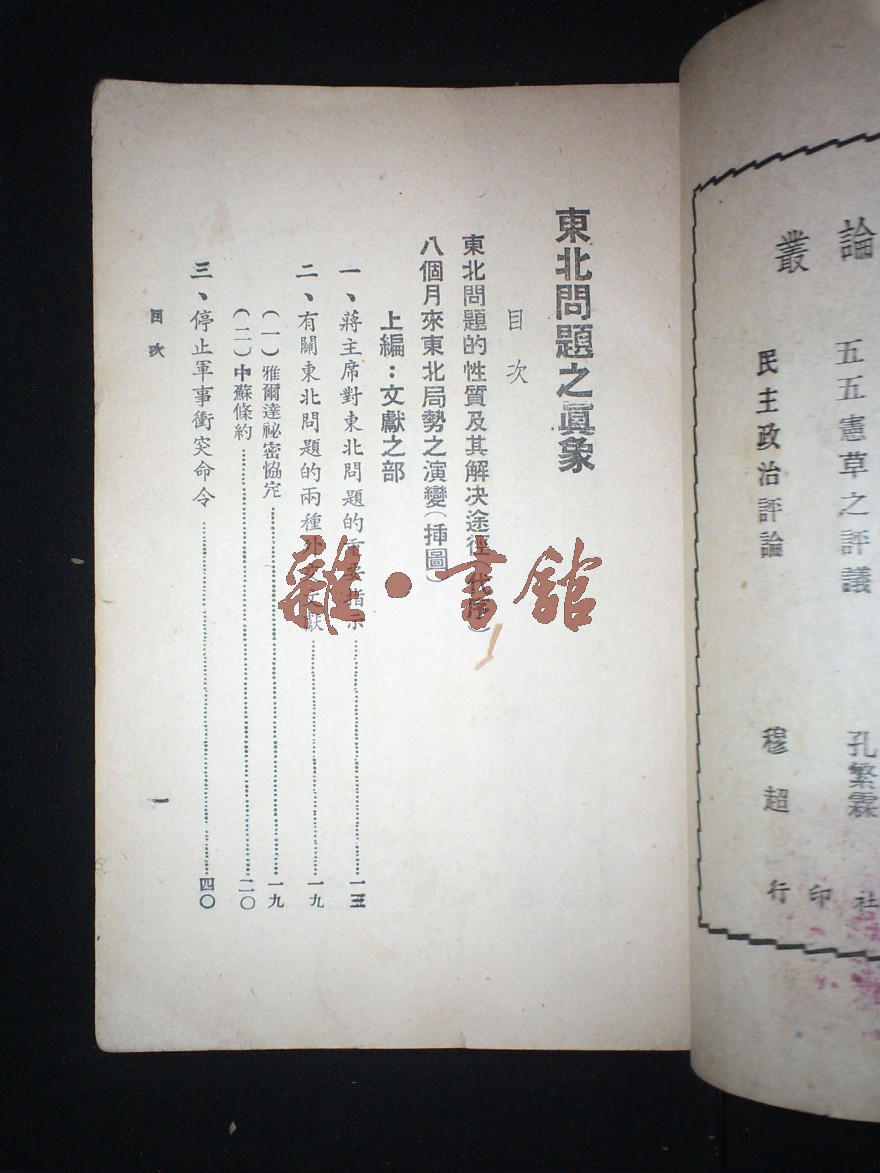 論
叢
五五憲草之評議 孔繁霖
民主政治評論 穆超
社
印
行
東北問題之眞象
目次
東北問題的性質及其解決途徑(代序)
八個月來東北局勢之演變(挿圖)
上編:文獻之部
一、蔣主席對東北問題的重要指示
二、有關東北問題的兩種外交文獻……一九
(一)雅爾達祕密協定……一九
(二)中蘇條約……二〇
三、停止軍事衝突命令……四〇
目次
一
雜·書館